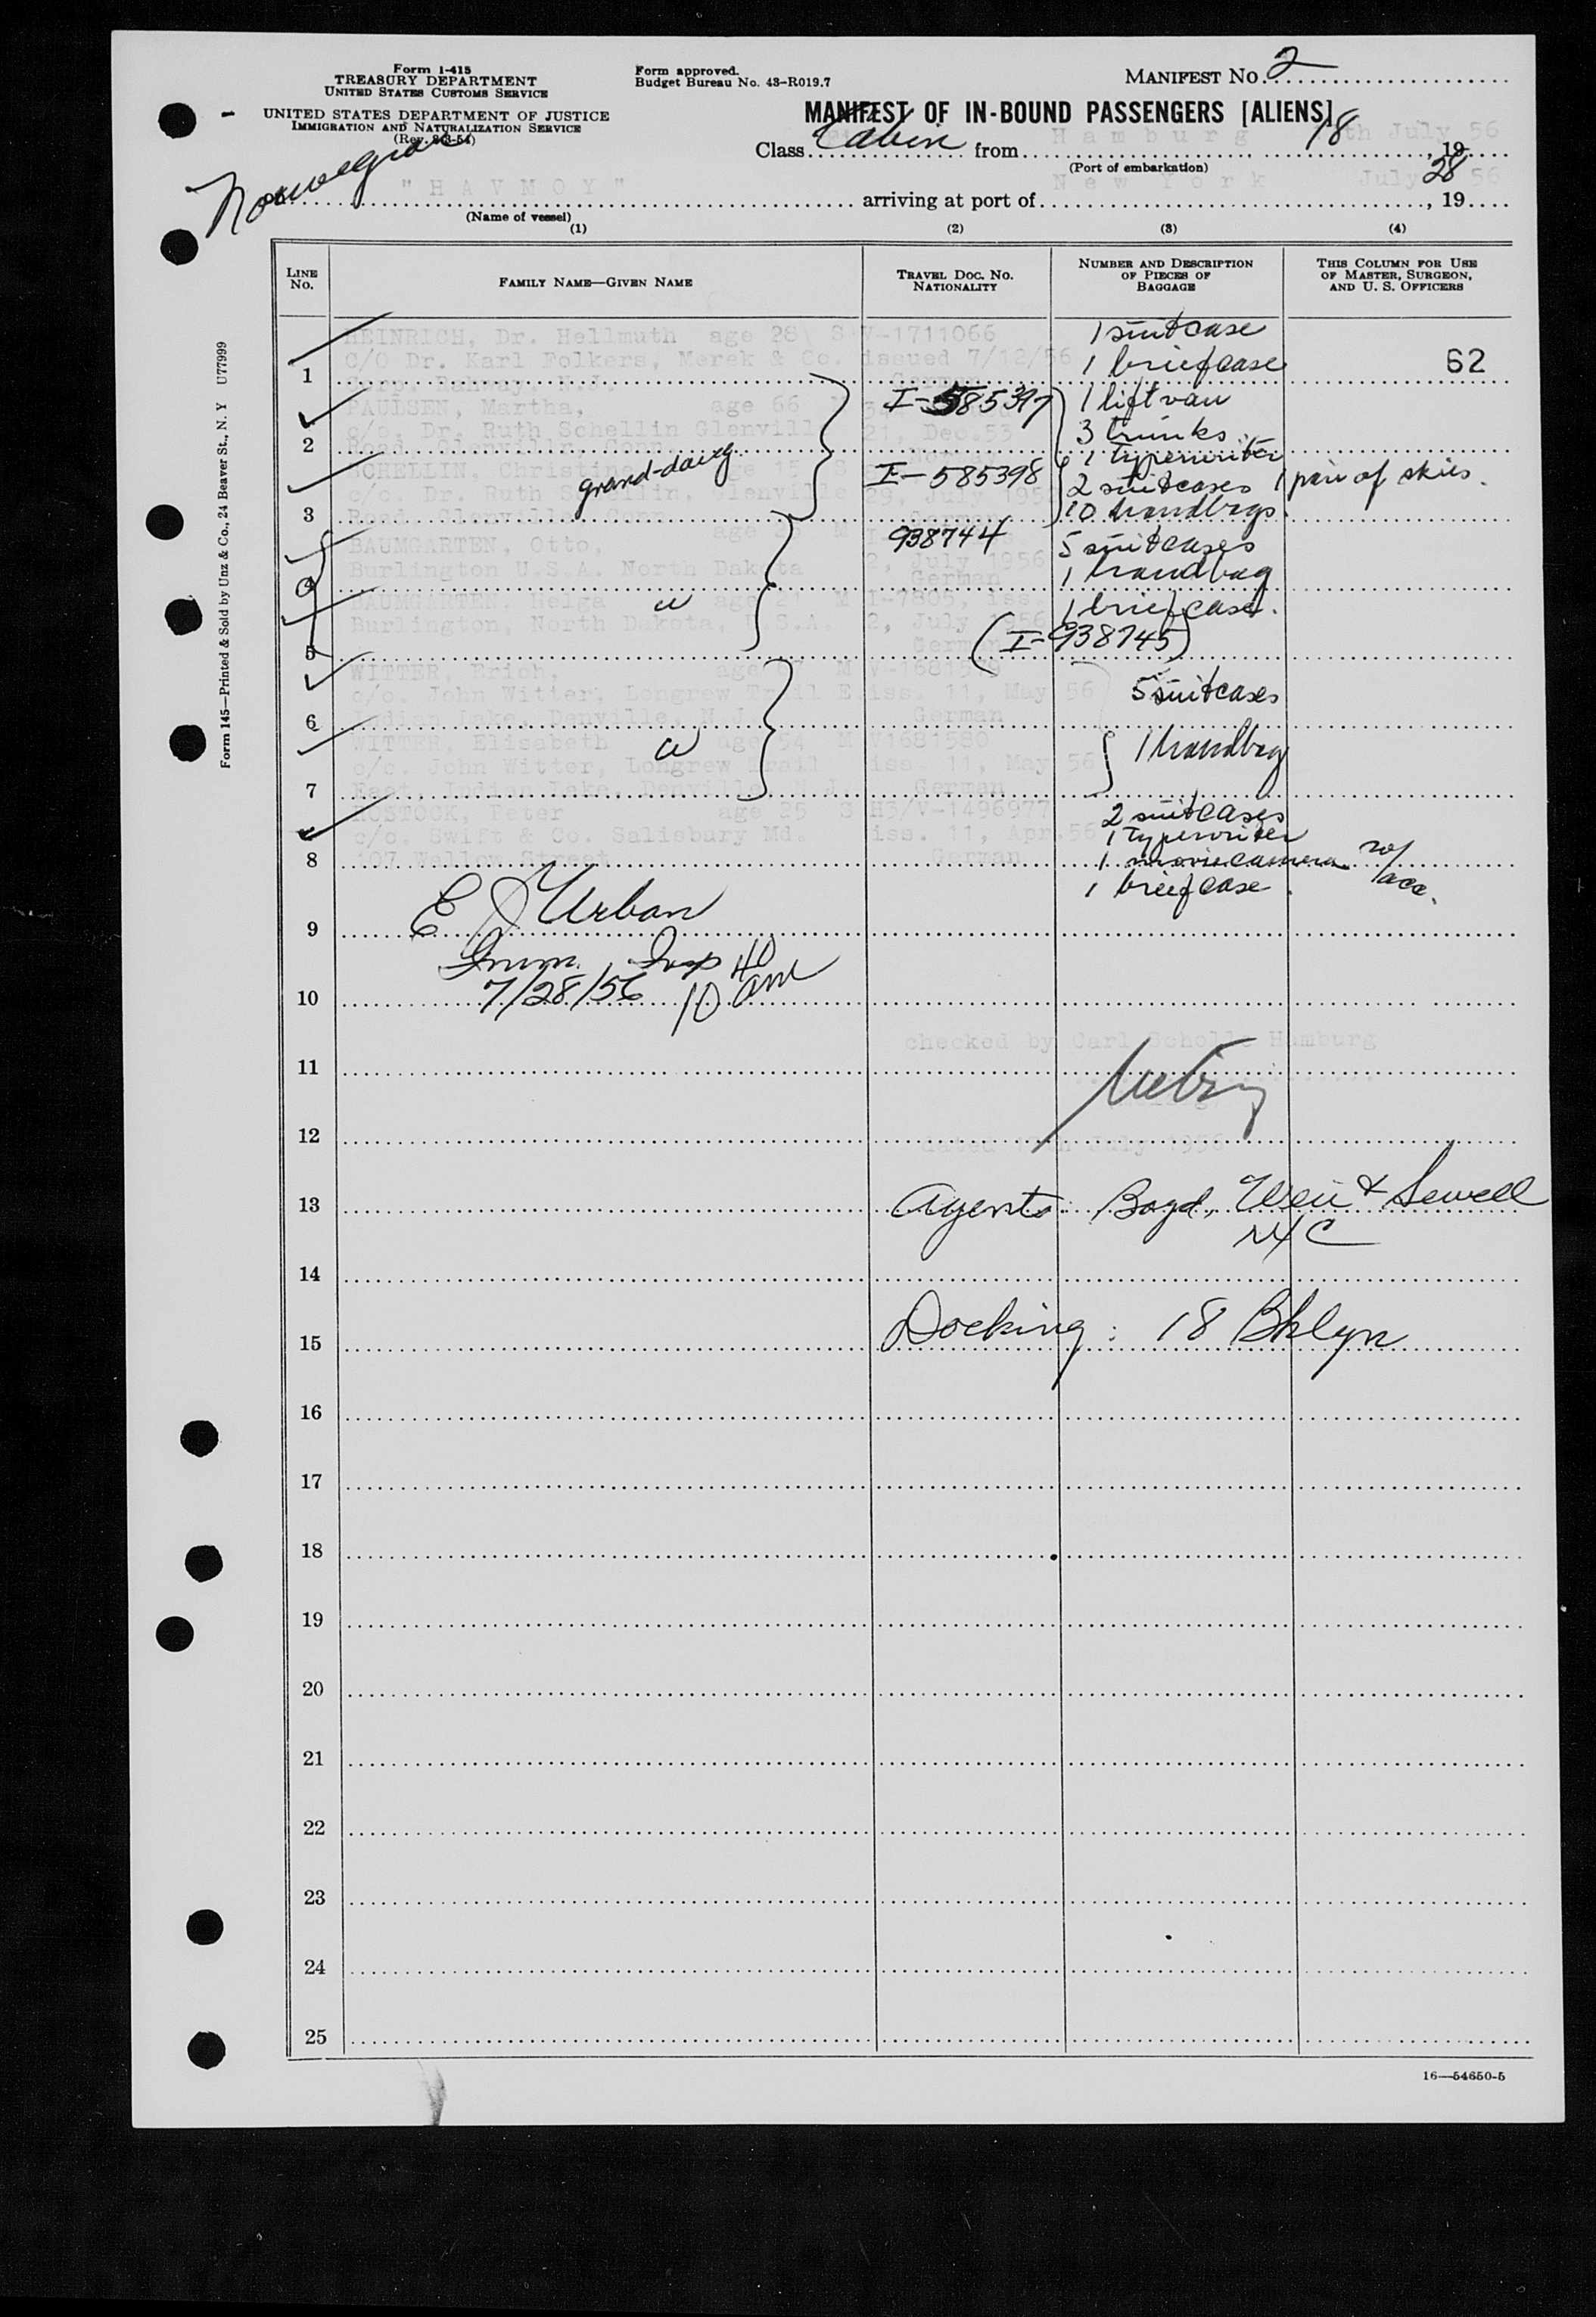 Form I-415
TREASURY DEPARTMENT
UNITED STATES CUSTOMS SERVICE
UNITED STATES DEPARTMENT OF JUSTICE
IMMIGRATION AND NATURALIZATION SERVICE
Form approved.
Budget Bureau No. 43-R019.7
MANIFEST NO. 2
MANIFEST OF IN-BOUND PASSENGERS [ALIENS]
Class Cabin from Hamburg 18th July, 1956
(Port of embarkation)
Norwegian "HAVMOY" arriving at port of New York July 28, 1956
(Name of vessel)
(1) (2) (3) (4)
LINE NO.
FAMILY NAME—GIVEN NAME
TRAVEL DOC. NO. NATIONALITY
NUMBER AND DESCRIPTION OF PIECES OF BAGGAGE
THIS COLUMN FOR USE OF MASTER, SURGEON, AND U. S. OFFICERS
HEINRICH, Dr. Hellmuth age 28 S V-1711066 1 suitcase
C/O Dr. Karl Folkers, Merck & Co. issued 7/12/56 1 briefcase 62
1
PAULSEN, Martha, age 66 I-585397 1 liftvan
c/o. Dr. Ruth Schellin Glenvill 21, Dec.53 3 trunks
2 Road, Glenville, Conn. 1 typewriter
SCHELLIN, Christine grand-daug age 15 S I-585398 2 suitcases 1 pair of skis.
c/o. Dr. Ruth Schellin, Glenville 29, 10 handbgs.
3 Road, Glenville Conn.
BAUMGARTEN, Otto, age M 938744 5 suitcases
Burlington U.S.A. North Dakota 2, July 1956 1 handbag
4 German
BAUMGARTEN, Helga w age 21 M I-7805, iss. 1 briefcase.
Burlington, North Dakota, U.S.A. 2, July 1956 (I-938745)
5 German
WITTER, Erich, age M
c/o. John Witter, Longrew Trail E iss. 11, May 56 5 suitcases
6 Indian Lake, Denville, N.J. German
WITTER, Elisabeth w age 54 M V1681580 1 handbag
c/o. John Witter, Longrew Trail iss. 11, May 56
7 East, Indian Lake, Denville, N.J. German
ROSTOCK, Peter age 25 S H3/V-1496977 2 suitcases
c/o. Swift & Co. Salisbury Md. iss. 11, Apr.56 1 typewriter
8 107 Street German 1 moviecamera w/ acc.
1 briefcase
9 E J Urban
Imm. Insp
10 7/28/56 10 40 am
checked by Carl Scholle Hamburg
11
12 dated July 1956
13 Agents: Boyd, Weir & Sewell
NYC
14
15 Docking: 18 Bklyn
16
17
18
19
20
21
22
23
24
25
16—54650-5
Form 145—Printed & Sold by Unz & Co., 24 Beaver St., N. Y U77999